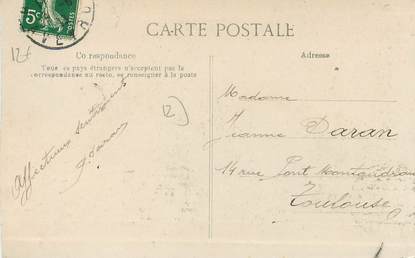 5c
12f
CARTE POSTALE
Correspondance
Tous les pays étrangers n'acceptent pas la
correspondance au recto, se renseigner à la poste
Adresse
Affectueux sentiments
Daran
12)
Madame
Jeanne Daran
14 rue Pont Montaudran
Toulouse